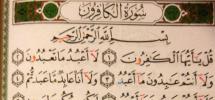 سُورَةُ الْكَافِرُونَ
بِسْمِ اللَّهِ الرَّحْمَٰنِ الرَّحِيمِ
قُلْ يَٰٓأَيُّهَا ٱلْكَٰفِرُونَ ۝ لَآ أَعْبُدُ مَا تَعْبُدُونَ ۝
وَلَآ أَنتُمْ عَٰبِدُونَ مَآ أَعْبُدُ ۝ وَلَآ أَنَا۠ عَابِدٌ مَّا عَبَدتُّمْ